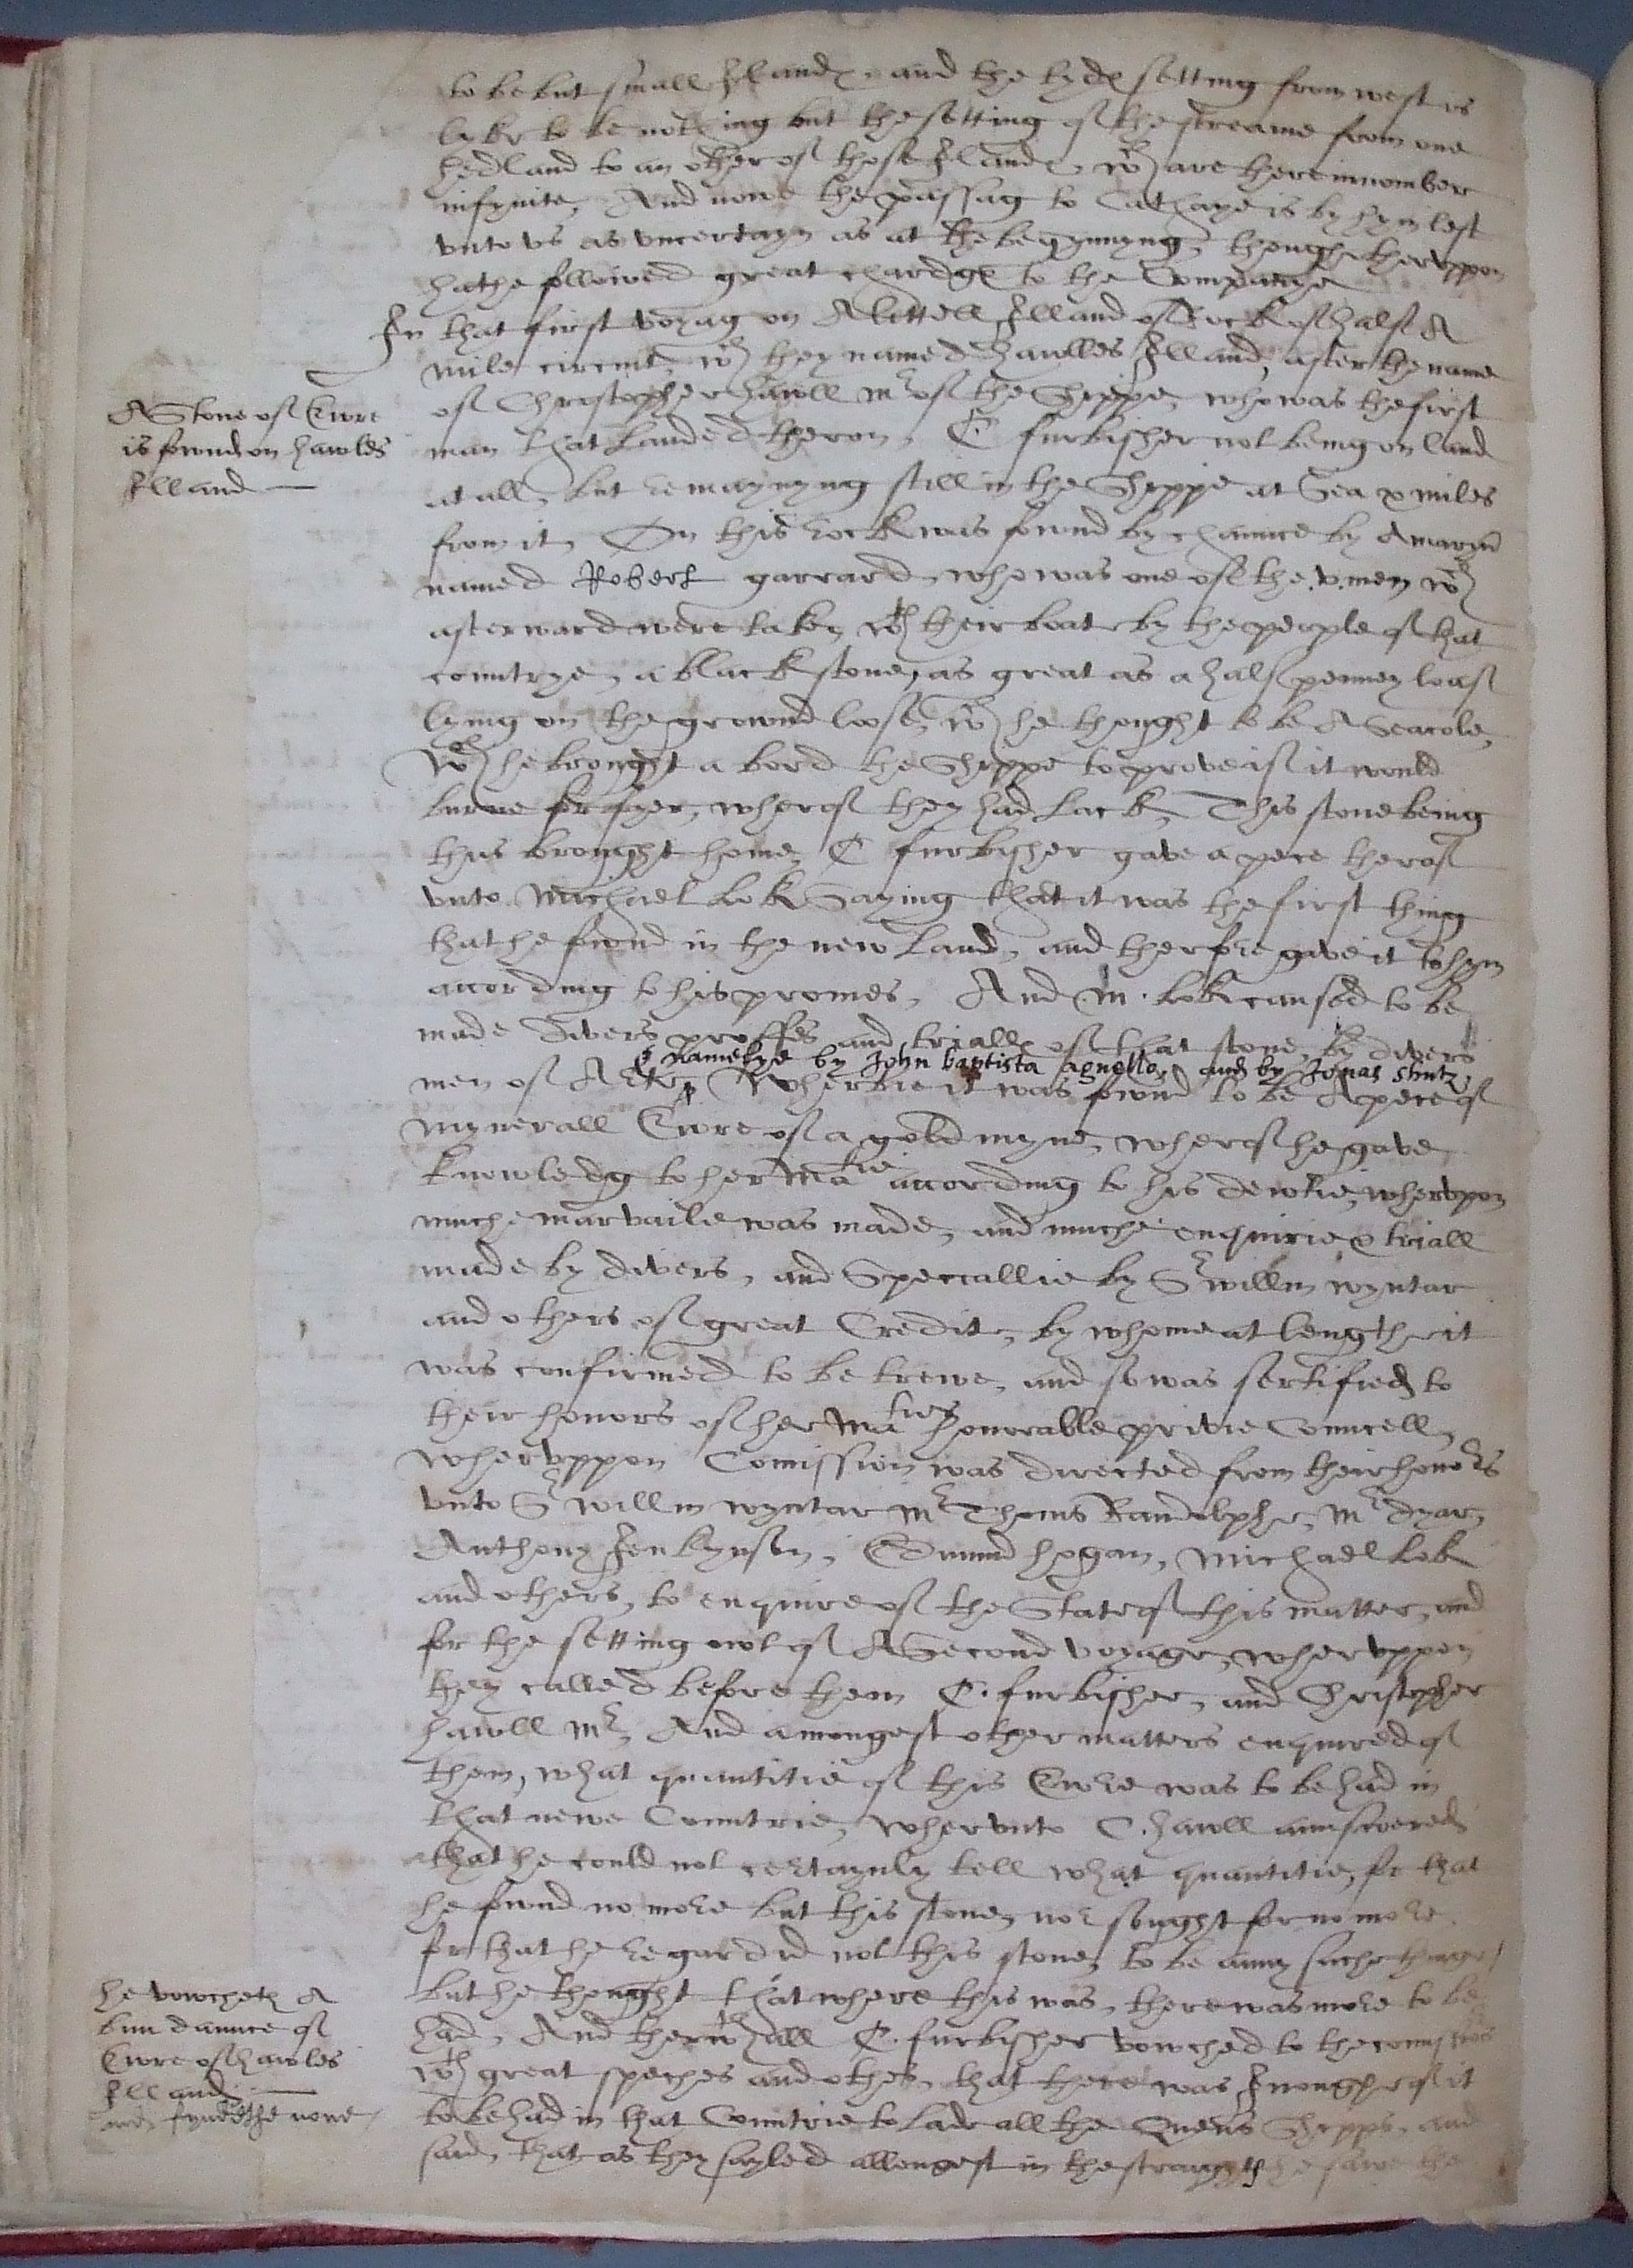 to be but small Ilands, and the tydes setting from west is
lyke to be nothing but the setting of the streame from one
hedland to an other of those Ilands, wch are there in nomber
infynite, And nowe the passag to Cathaye is by hym left
vnto vs as vncertayn as at the begynnyng, thoughe thervppon
hathe followed great chardges to the Companye
In that first voyag on A littell Illand of Rock of half A
mile circuit, wch they named hawlles Illand, after the name
of Christopher hawll mr of the Shippe, who was the first
A Stone of Ewre
is fownd on hawles
Illand
man that landed theron, C. furbisher not being on land
at all, but remaynyng still in the Shippe at Sea x miles
from it, On this rock was fownd by chaunce by A maryn
named Robert garrard, who was one of the .v. men wch
afterward were taken wth their boat by the people of that
countrye, a black stone, as great as a half penney loaf
lying on the grownd loose, wch he thought to be A Seacole,
wch he brought a bord the Shippe to prove if it would
burne for fyer, wherof they had lack, This stone being
thus brought home, C furbisher gave a pece therof
vnto Michael Lok Saying that it was the first thing
that he fownd in the new land, and therfore gave it to hym
according to his promes, And m. Lok caused to be
made divers proffes and trialls of that stone, by divers
& namelye by John baptista agnello, and by Jonas shutz,
men of Arte, Wherbie it was fownd to be A pece of
mynerall Ewre of a gold myne, wherof he gave
knowledg to her Matie according to his dewtie, whervpon
muche marvaile was made, and muche enquirie & triall
made by divers, and Speciallie by Sr willm wyntar
and others of great Credit, by whome at lengthe it
was confirmed to be trewe, and so was sertified to
their honors of her Maties honorable privie Councell,
whervppon Comission was directed from their honors
vnto Sr willm wyntar mr Thoms Randolphe, mr dyar,
Anthony Jenkynson, Edmund hogan, Michael Lok
and others, to enquire of the State of this matter, and
for the setting owt of A Second voyage, whervppon
they called before them C. furbisher, and Christopher
hawll mr, And amongest other matters enquired of
them, what quantitie of this Ewre was to be had in
that newe Countrie, whervnto C. hawll aunswered
that he could not certaynly tell what quantitie, for that
he fownd no more but this stone, nor sought for no more
for that he regardid not this stone, to be anny suche thinge /
he vowcheth A
bundaunce of
Ewre of hawles
Illand
and fyndethe none
but he thought that where this was, there was more to be
had, And therwthall C. furbisher vowched to the comissrs
wth great speches and othes, that there was Inoughe of it
to be had in that Countrie to lade all the Quens Shipps, and
said, that as they sayled allongest in the straight he sawe the